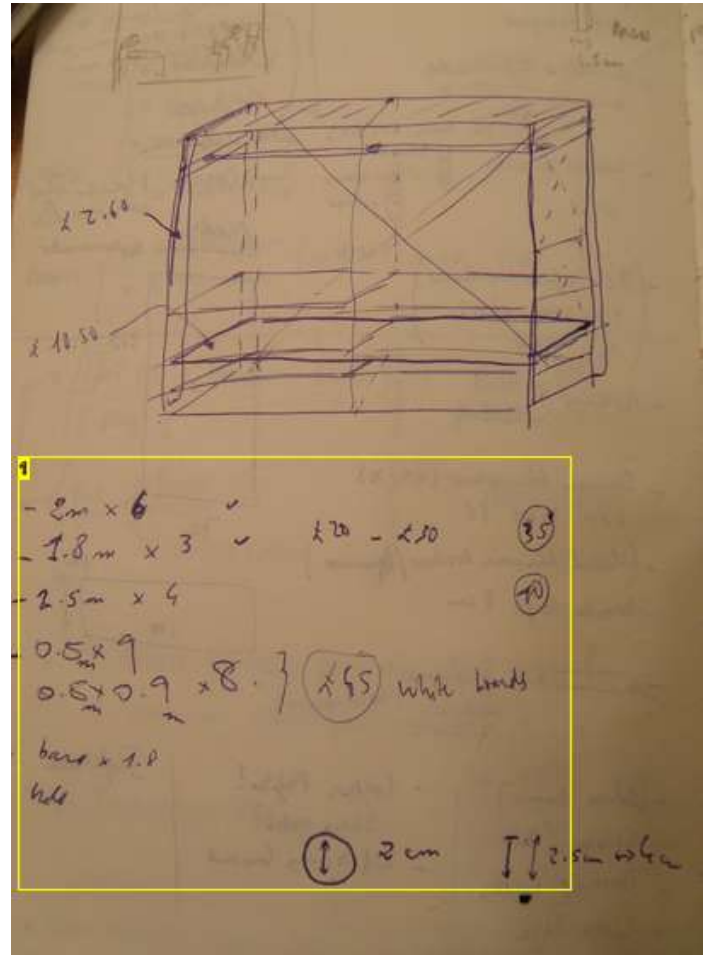 £ 2.60
£ 10.50
- 2m × 6 ✓
- 1.8m × 3 ✓ £20 - £30 35
- 2.5m × 4 40
- 0.5m × 9
0.5m × 0.9m × 8. } £45 white boards
base × 1.8
hole
2 cm
2.5cm